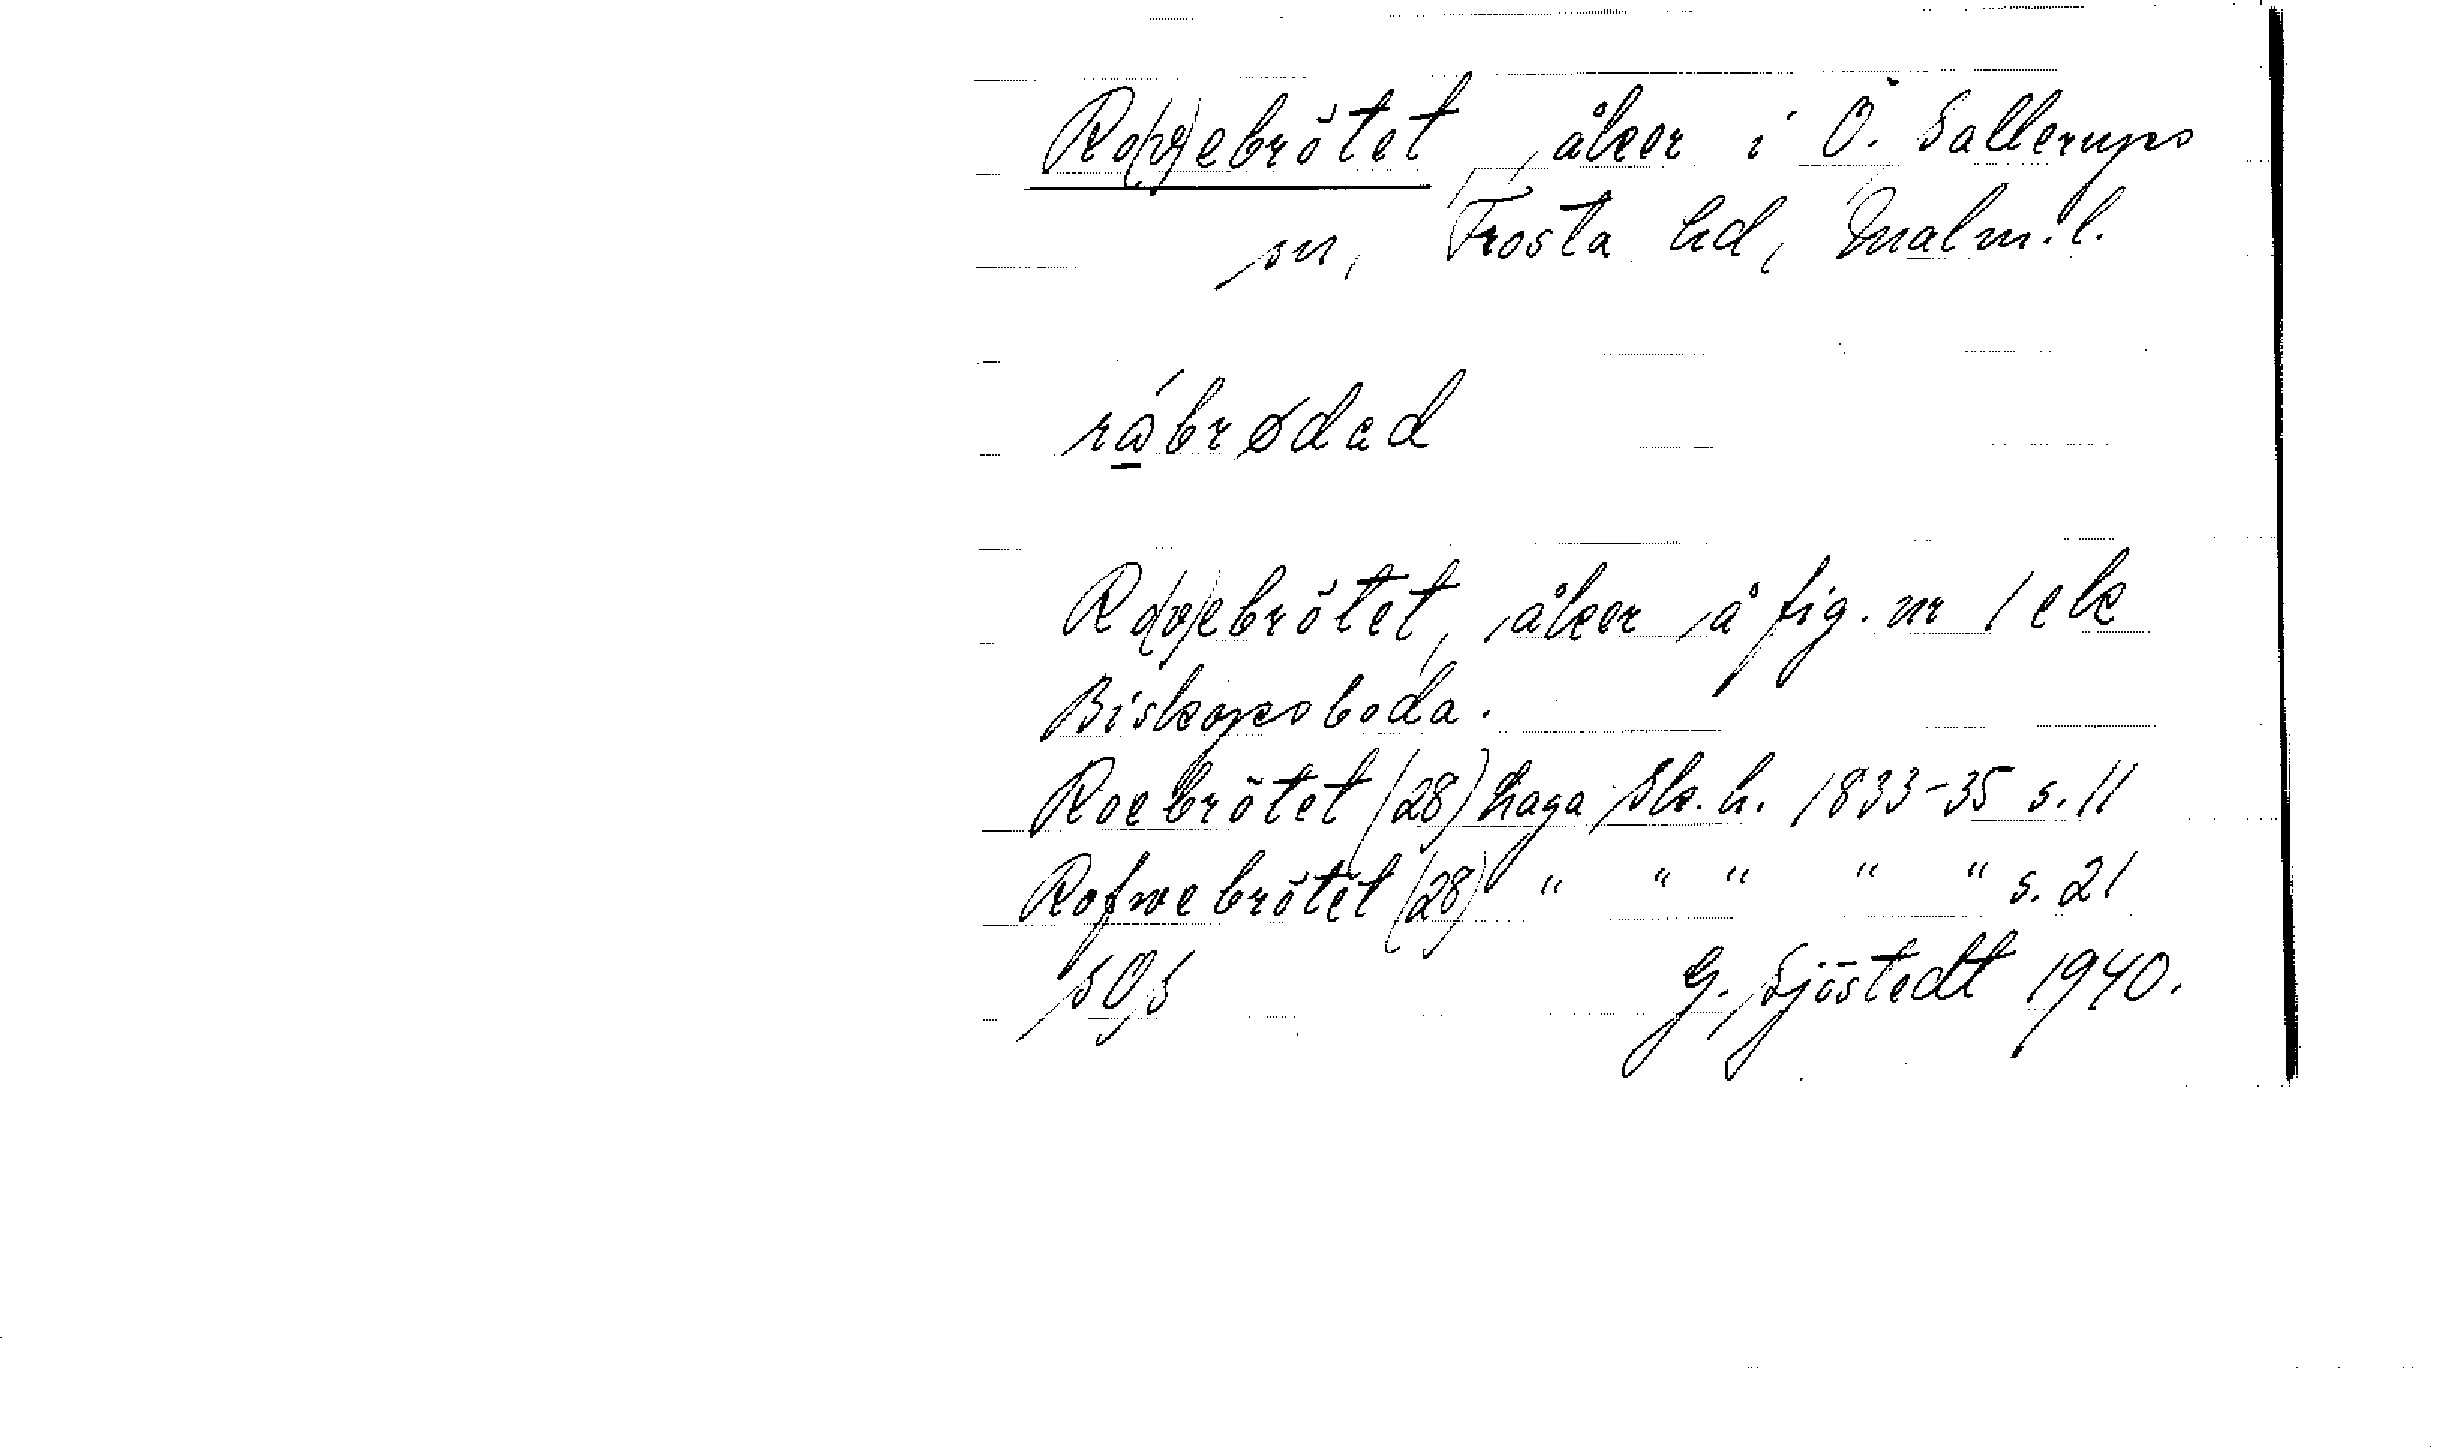 Ro(v)ebrötet, åker i Ö. Sallerups
sn, Frosta hd, Malm. l.
råbrødad
Ro(v)ebrötet, åker å fig. nr 1 ek
Biskopsboda.
Roebrötet (28) haga Sk. h. 1833-35 s. 11
Rofwebrötet (28) " " " " " s. 21
SOS G. Sjöstedt 1940.